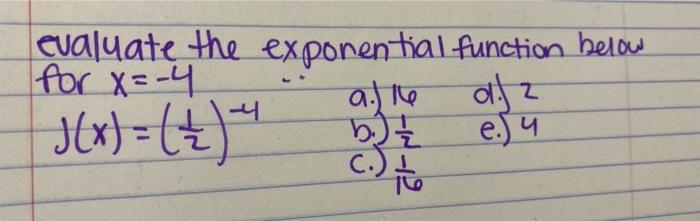 evaluate the exponential function below
for x=-4
J(x) = (1/2)^-4
a.) 16 d.) 2
b.) 1/2 e.) 4
c.) 1/16